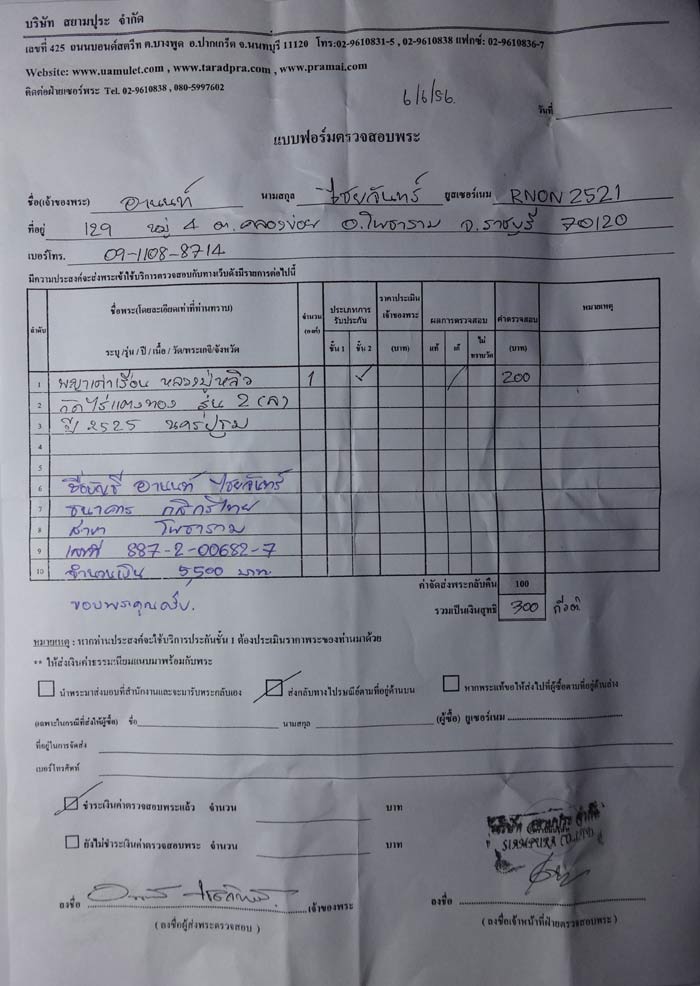 บริษัท สยามปุระ จำกัด
เลขที่ 425 ถนนบอนด์สตรีท ต.บางพูด อ.ปากเกร็ด จ.นนทบุรี 11120 โทร:02-9610831-5 , 02-9610838 แฟกซ์: 02-9610836-7
Website: www.uamulet.com , www.taradpra.com , www.pramai.com
ติดต่อฝ่ายเซอร์พระ Tel. 02-9610838 , 080-5997602
6/6/56.
วันที่
แบบฟอร์มตรวจสอบพระ
ชื่อ(เจ้าของพระ) อานนท์ นามสกุล ไชยจันทร์ ยูสเซอร์เนม RNON 2521
ที่อยู่ 129 หมู่ 4 ต.คลองข่อย อ.โพธาราม จ.ราชบุรี 70120
เบอร์โทร. 09-1108-8714
มีความประสงค์จะส่งพระเข้าใช้บริการตรวจสอบกับทางเว็บดังมีรายการต่อไปนี้
ลำดับ ชื่อพระ(โดยละเอียดเท่าที่ท่านทราบ) ระบุ /รุ่น / ปี / เนื้อ / วัด/พระเกจิ/จังหวัด จำนวน (องค์) ประเภทการรับประกัน ชั้น 1 ชั้น 2 ราคาประเมินเจ้าของพระ (บาท) ผลการตรวจสอบ แท้ เก๊ ไม่ทราบวัด ค่าตรวจสอบ (บาท) หมายเหตุ
1 พญาเต่าเรือน หลวงปู่หลิว 1 ✓ / 200
2 วัดไร่แตงทอง รุ่น 2 (ล)
3 ปี 2525 นครปฐม
4
5
6 ชื่อบัญชี อานนท์ ไชยจันทร์
7 ธนาคาร กสิกรไทย
8 สาขา โพธาราม
9 เลขที่ 887-2-00682-7
10 จำนวนเงิน 5,500 บาท
ค่าจัดส่งพระกลับคืน 100
ขอบพระคุณครับ.
รวมเป็นเงินสุทธิ 300
หมายเหตุ : หากท่านประสงค์จะใช้บริการประกันชั้น 1 ต้องประเมินราคาพระของท่านมาด้วย
** ให้ส่งเงินค่าธรรมเนียมแนบมาพร้อมกับพระ
นำพระมาส่งมอบที่สำนักงานและจะมารับพระกลับเอง ส่งกลับทางไปรษณีย์ตามที่อยู่ด้านบน หากพระแท้ขอให้ส่งไปที่ผู้ซื้อตามที่อยู่ด้านล่าง
(เฉพาะในกรณีที่ส่งให้ผู้ซื้อ) ชื่อ นามสกุล (ผู้ซื้อ) ยูเซอร์เนม
ที่อยู่ในการจัดส่ง
เบอร์โทรศัพท์
ชำระเงินค่าตรวจสอบพระแล้ว จำนวน บาท
ยังไม่ชำระเงินค่าตรวจสอบพระ จำนวน บาท
บริษัท สยามปุระ จำกัด
SIAMPURA CO.,LTD
ลงชื่อ เจ้าของพระ ลงชื่อ
( ลงชื่อผู้ส่งพระตรวจสอบ ) ( ลงชื่อเจ้าหน้าที่ฝ่ายตรวจสอบพระ )